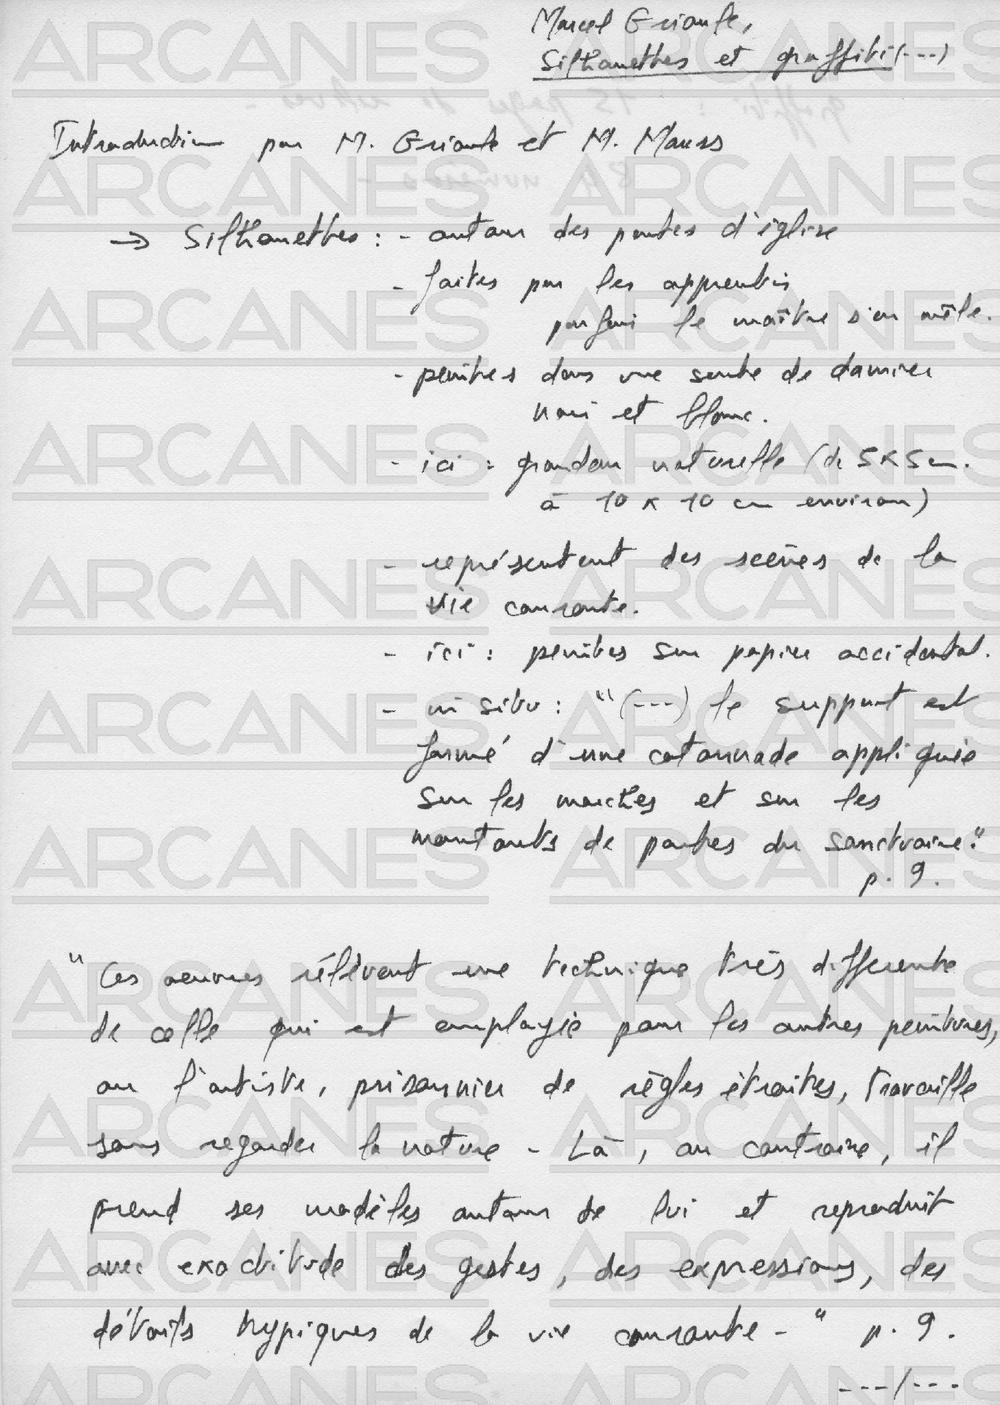 Marcel Griaule,
Silhouettes et graffiti (---)
Introduction par M. Griaule et M. Mauss
→ Silhouettes : - autour des portes d'église
- faites par les apprentis
parfois le maître s'en mêle.
- peintes dans une sorte de damier
noir et blanc.
- ici : grandeur naturelle (de 5 x 5 cm.
à 10 x 10 cm environ)
- représentent des scènes de la
vie courante.
- ici : peintes sur papier occidental.
- in situ : "(---) le support est
formé d'une cotonnade appliquée
sur les marches et sur les
montants de portes du sanctuaire."
p. 9.
"Ces oeuvres rélèvent une technique très différente
de celle qui est employée pour les autres peintures,
où l'artiste, prisonnier de règles étroites, travaille
sans regarder la nature - Là, au contraire, il
prend ses modèles autour de lui et reproduit
avec exactitude des gestes, des expressions, des
détails typiques de la vie courante - " p. 9.
---/---
ARCANES